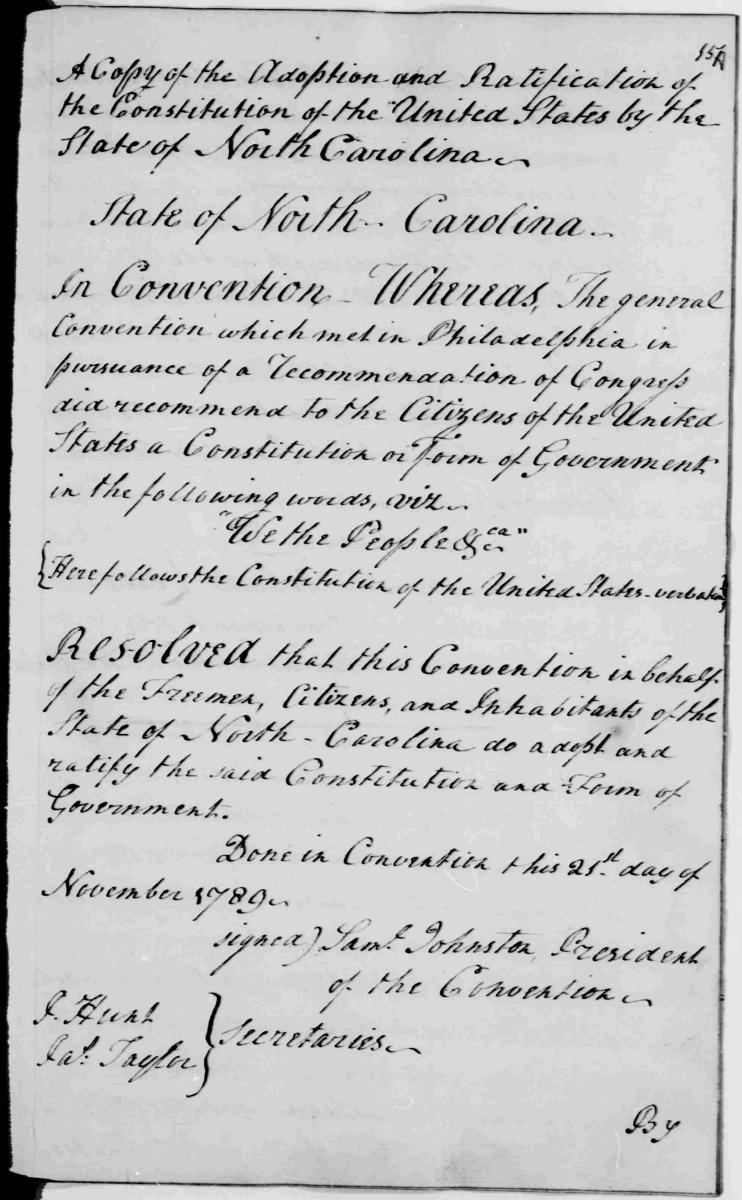 157
A Copy of the Adoption and Ratification of
the Constitution of the United States by the
State of North Carolina
State of North - Carolina
In Convention - Whereas, The general
Convention which met in Philadelphia in
pursuance of a recommendation of Congress
did recommend to the Citizens of the United
States a Constitution or Form of Government
in the following words, viz
"We the People &ca"
{Here follows the Constitution of the United States - verbatim}
Resolved that this Convention in behalf
of the Freemen, Citizens, and Inhabitants of the
State of North - Carolina do adopt and
ratify the said Constitution and Form of
Government.
Done in Convention this 21st. day of
November 1789
signed) Saml. Johnston, President
of the Convention
J. Hunt
Jas. Taylor } Secretaries
By